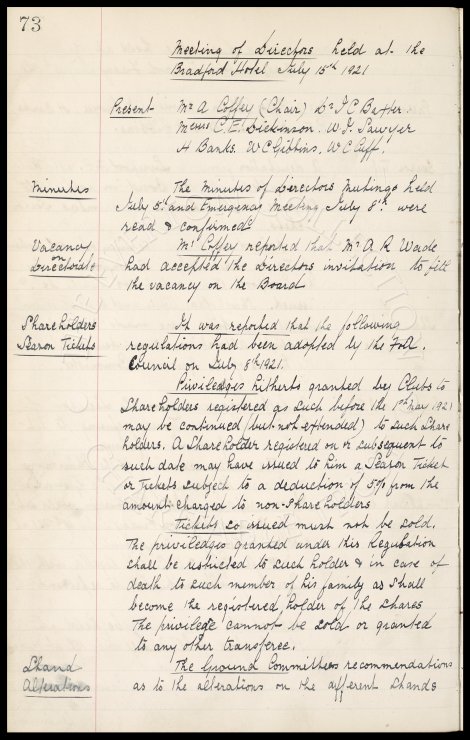 73
Meeting of Directors held at the
Bradford Hotel July 15th 1921
Present Mr A Coffey (Chair) Dr J C Baxter.
Messrs C. E. Dickinson. W J. Sawyer
H Banks. W C Gibbins, W C Cuff.
Minutes The Minutes of Directors Meetings held
July 5th and Emergency Meeting July 8th were
read & confirmed
Vacancy Mr Coffey reported that Mr A R Wade
on
Directorate had accepted the Directors invitation to fill
the vacancy on the Board
Shareholders It was reported that the following
Season Tickets regulations had been adopted by the F.A.
Council on July 8th 1921.
Priviledges hitherto granted by Clubs to
Shareholders registered as such before the 1st May 1921
may be continued (but not extended) to such Share
holders. A Shareholder registered on or subsequent to
such date may have issued to him a Season Ticket
or Tickets subject to a deduction of 5% from the
amount charged to non-shareholders
Tickets so issued must not be sold.
The priviledges granted under this Regulation
shall be restricted to such holder & in case of
death to such member of his family as shall
become the registered holder of the shares
The privilege cannot be sold or granted
to any other transferee.
Stand The Ground Committees recommendations
Alterations as to the alterations on the different Stands